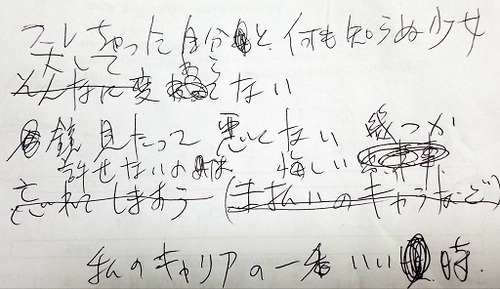 フレちゃった自分と何も知らぬ少女
大して わら
そんなに変 ない
鏡見たって 悪くない 幾つか
許せないの 悔しい
忘れてしまおう (未払いのギャラなど)
私のキャリアの一番いい時